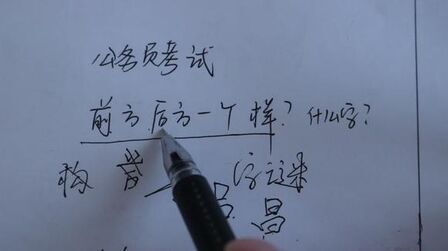 公务员考试
前方后方一个样？什么字？
字谜
昌